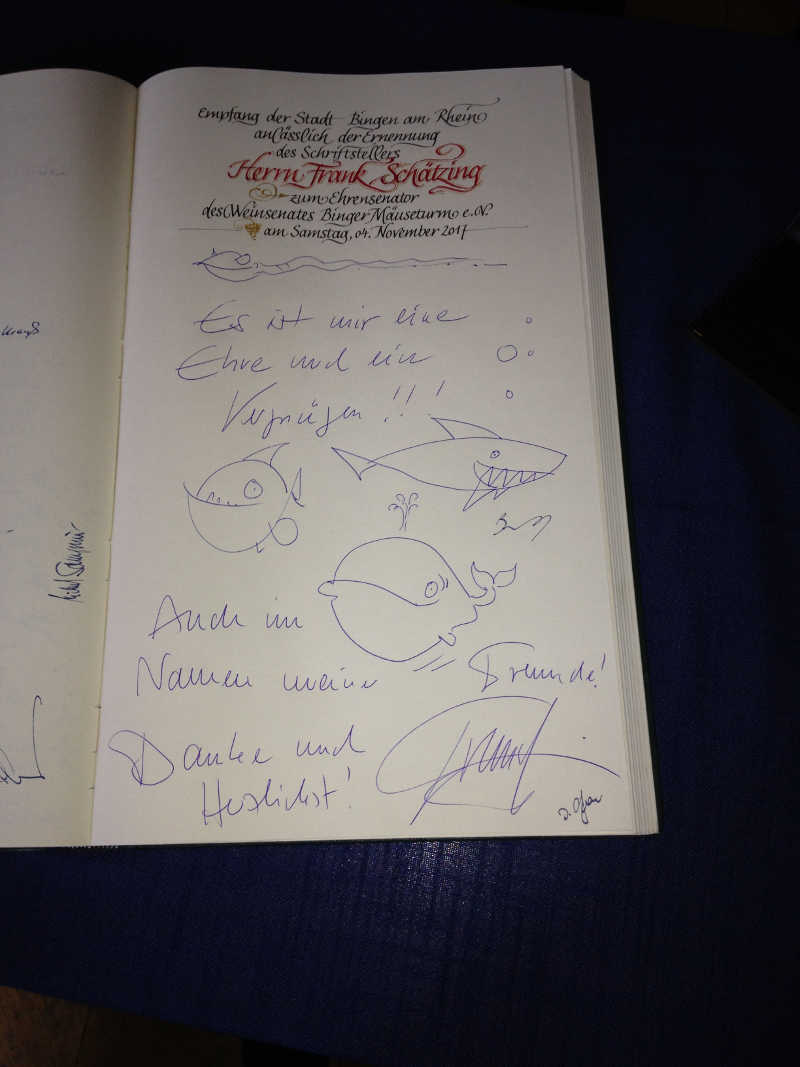 Empfang der Stadt Bingen am Rhein
anlässlich der Ernennung
des Schriftstellers
Herrn Frank Schätzing
zum Ehrensenator
des Weinsenates Binger Mäuseturm e.V.
am Samstag, 04. November 2017
Es ist mir eine
Ehre und ein
Vergnügen!!!
Auch im
Namen meiner Freunde!
Danke und
Herzlichst!